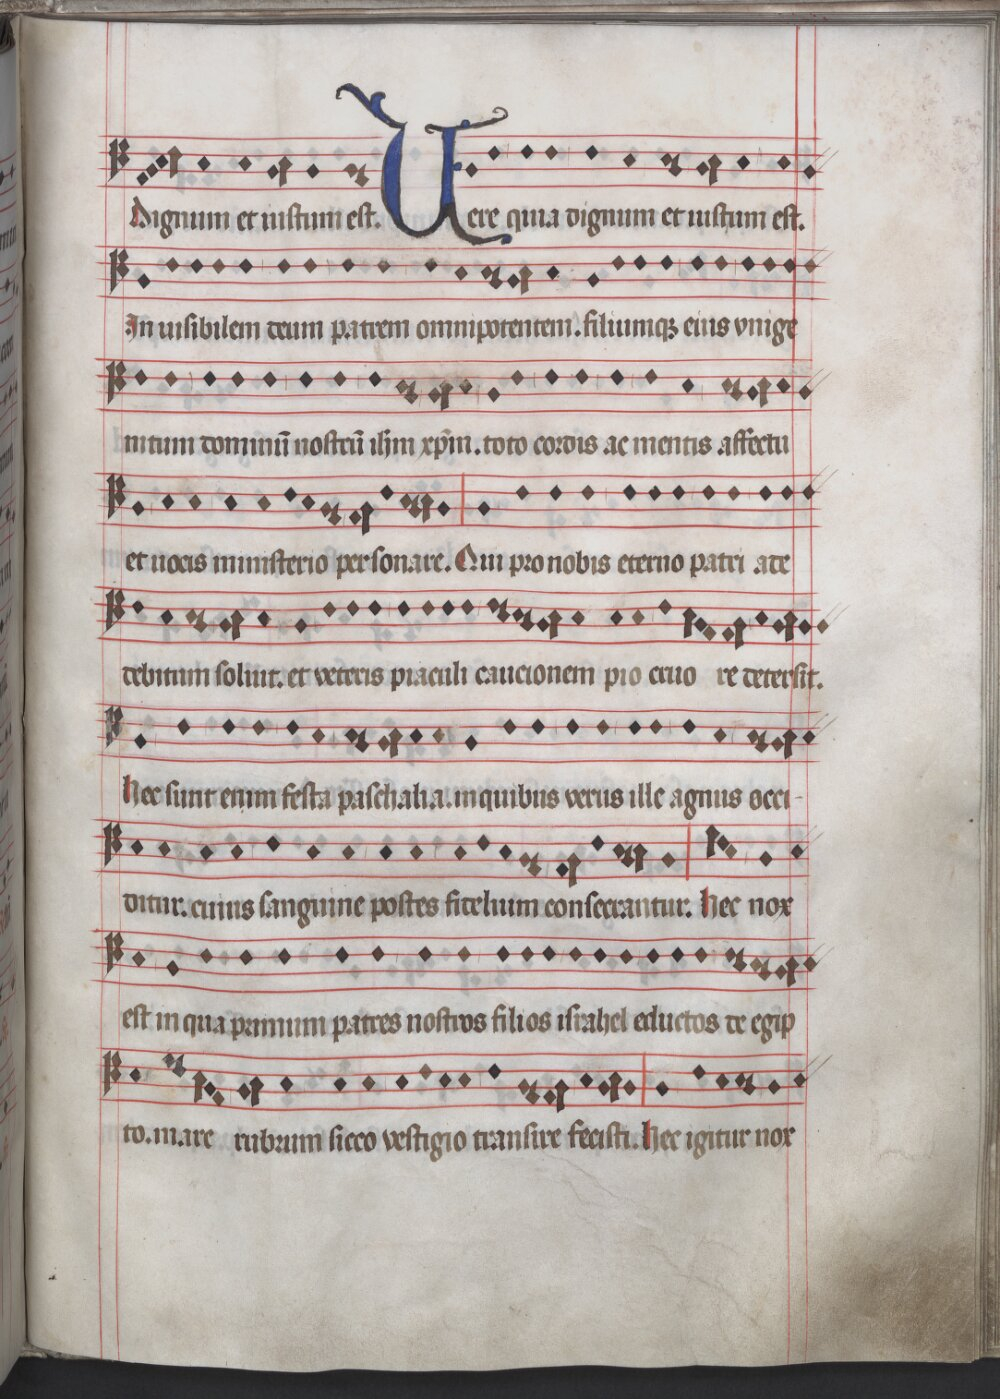 Dignum et iustum est. Uere quia dignum et iustum est.
In uisibilem deum patrem omnipotentem. filiumqꝫ eius vnige
nitum dominū nostrū ihm xpm. toto cordis ac mentis affectu
et uocis ministerio personare. Qui pro nobis eterno patri ade
debitum soluit. et veteris piaculi caucionem pio cruo re detersit.
Hec sunt enim festa paschalia. in quibus verus ille agnus occi-
ditur. cuius sanguine postes fidelium consecrantur. Hec nox
est in qua primum patres nostros filios israhel eductos de egip
to. mare rubrum sicco vestigio transire fecisti. Hec igitur nox